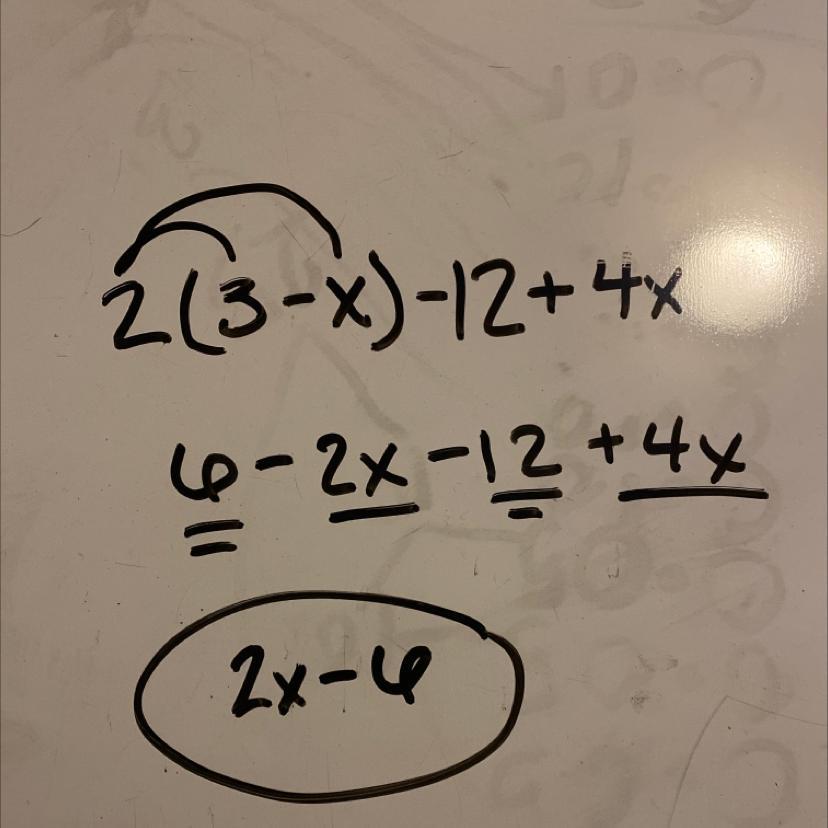 2(3-x)-12+4x
6-2x-12+4x
2x-6